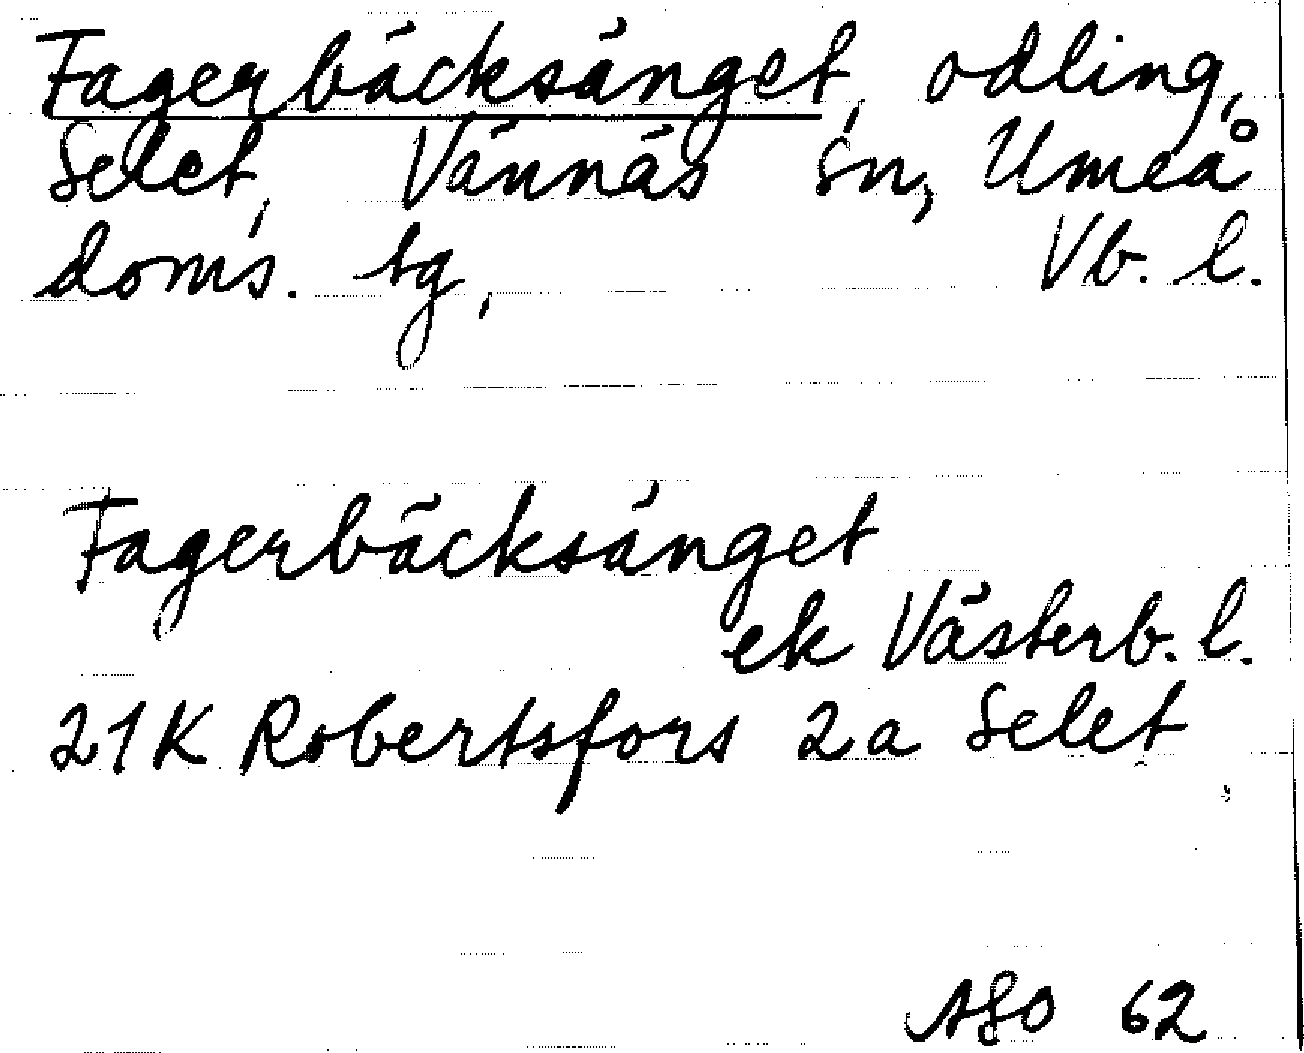 Fagerbäcksänget, odling,
Selet, Vännäs sn, Umeå
doms. tg, Vb. l.
Fagerbäcksänget
ek Västerb. l.
21K Robertsfors 2a Selet
ASO 62